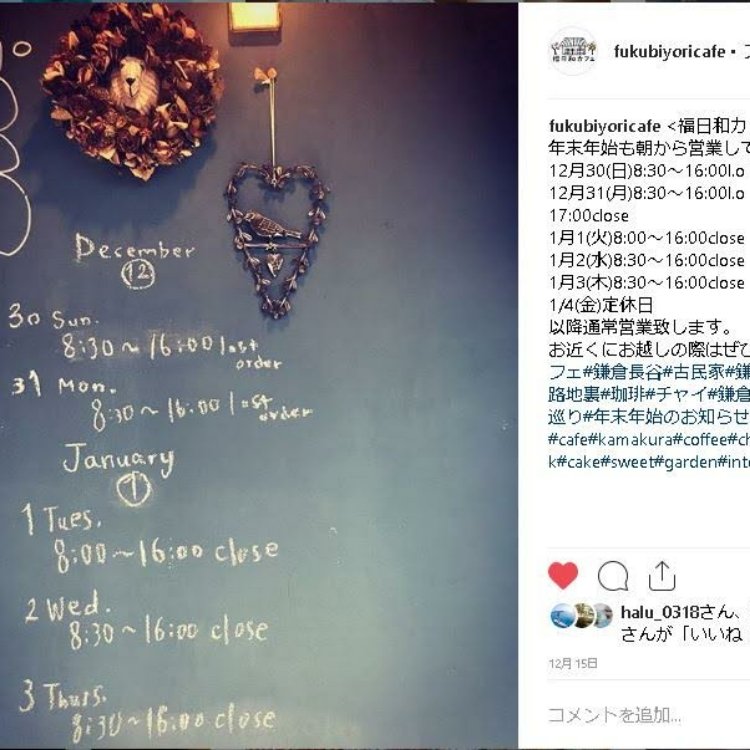 December
12
30 Sun.
8:30～16:00 last
order
31 Mon.
8:30～16:00 last
order
January
1
1 Tues.
8:00～16:00 close
2 Wed.
8:30～16:00 close
3 Thurs.
8:30～16:00 close
福日和カフェ
fukubiyoricafe •
fukubiyoricafe <福日和カ
年末年始も朝から営業して
12月30(日)8:30～16:00l.o
12月31(月)8:30～16:00l.o
17:00close
1月1(火)8:00～16:00close
1月2(水)8:30～16:00close
1月3(木)8:30～16:00close
1/4(金)定休日
以降通常営業致します。
お近くにお越しの際はぜひ
フェ#鎌倉長谷#古民家#鎌
路地裏#珈琲#チャイ#鎌倉
巡り#年末年始のお知らせ
#cafe#kamakura#coffee#ch
k#cake#sweet#garden#inte
halu_0318さん、
さんが「いいね
12月15日
コメントを追加...